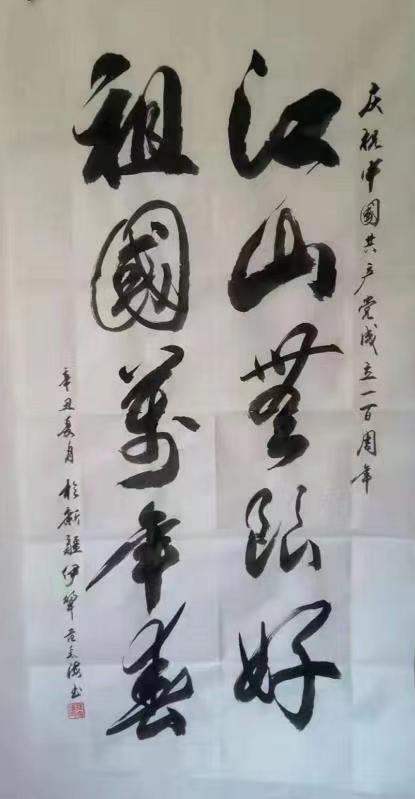 庆祝中國共产党成立一百周年
江山無限好
祖國萬年春
辛丑夏月於新疆伊犁 书